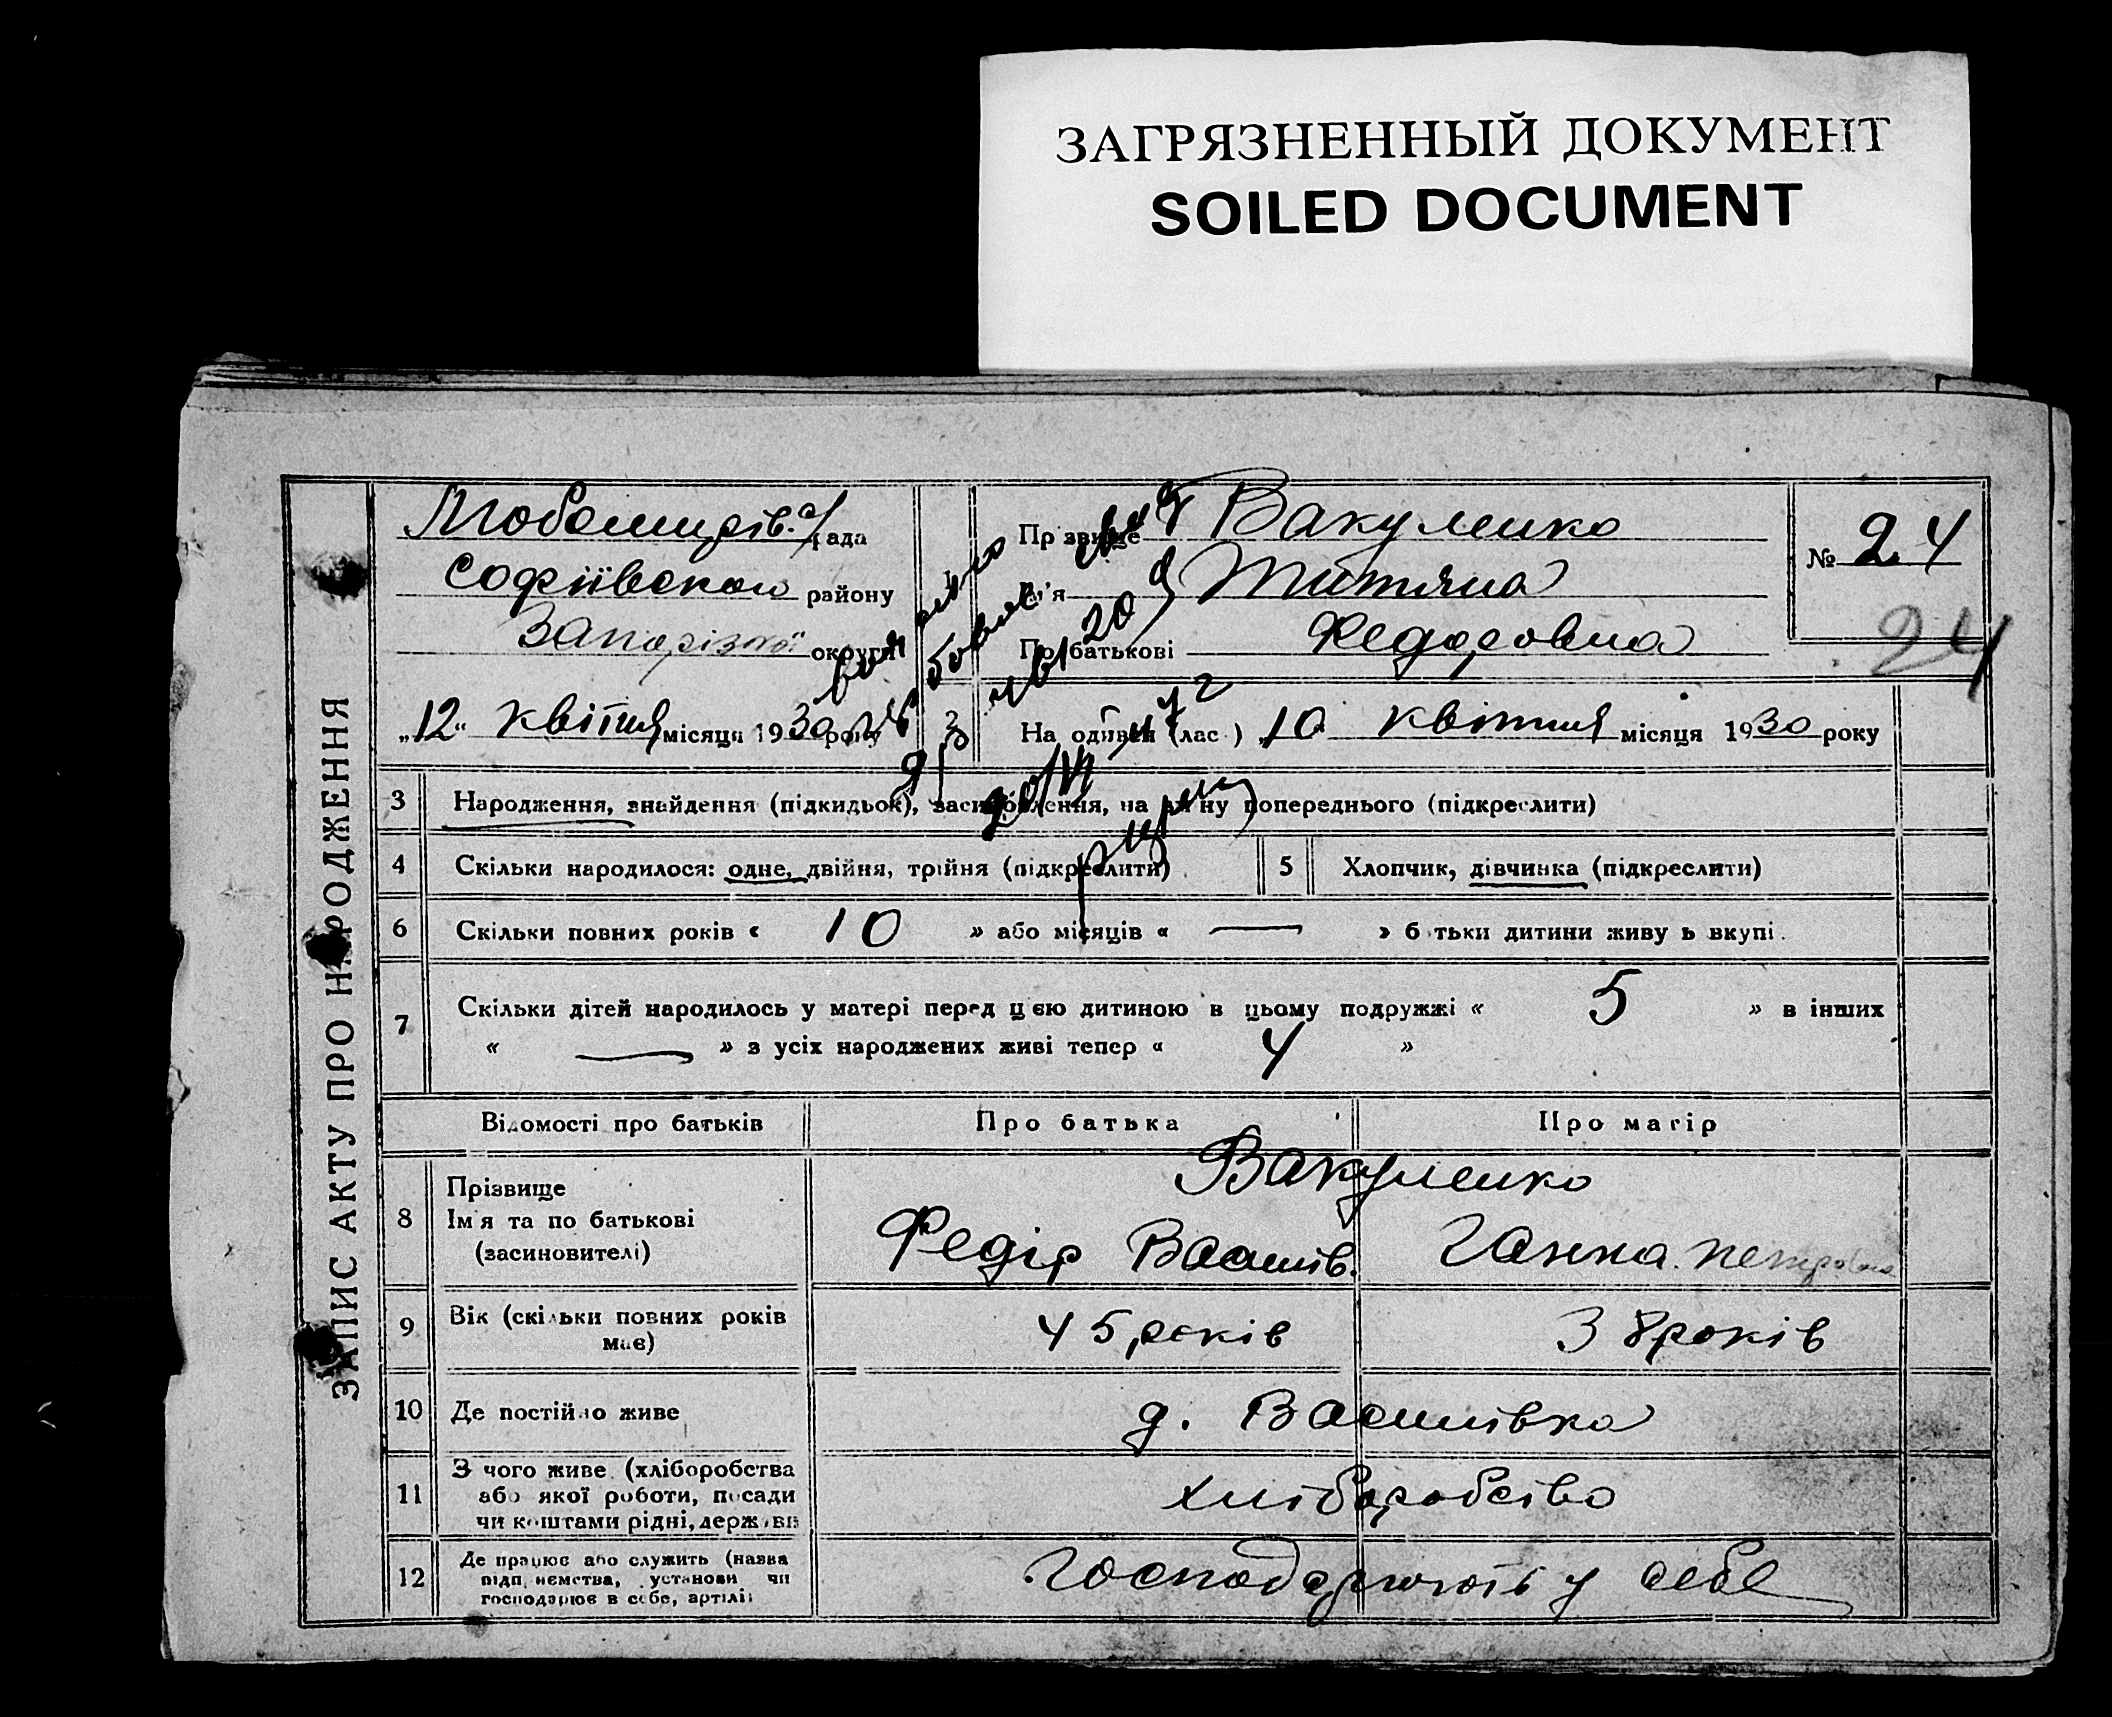 ЗАГРЯЗНЕННЫЙ ДОКУМЕНТ
SOILED DOCUMENT
ЗАПИС АКТУ ПРО НАРОДЖЕННЯ
рада
Софіївского району
Запорізкої округи
„12“ квітня місяця 1930 року
Прізвище Вакуленко
Ім'я Титяна
По батькові Федоровна
№ 24
24
10 квітня місяця 1930 року
3 Народження, знайдення (підкидьок), засиновлення, на зміну попереднього (підкреслити)
4 Скільки народилося: одне, двійня, трійня (підкреслити)
5 Хлопчик, дівчинка (підкреслити)
6 Скільки повних років « 10 » або місяців « — » батьки дитини живуть вкупі.
7 Скільки дітей народилось у матері перед цією дитиною в цьому подружжі « 5 » в інших
« — » з усіх народжених живі тепер « 4 »
Відомості про батьків Про батька Про матір
8 Прізвище
Ім'я та по батькові
(засиновителі)
Вакуленко
Федір Василів. Ганна Петровна
9 Вік (скільки повних років
має)
45 років 38 років
10 Де постійно живе д. Василівка
11 З чого живе (хліборобства
або якої роботи, посади
чи коштами рідні, держави
хліборобство
12 Де працює або служить (назва
підприємства, установи чи
господарює в себе, артілі)
господарюють у себе